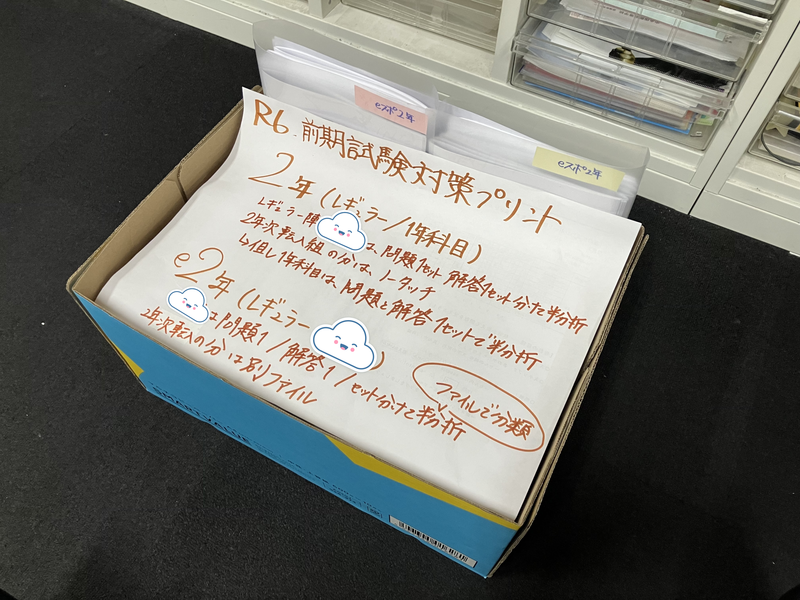 eスポ2年
eスポ2年
R6. 前期試験対策プリント
2年(レギュラー/1年科目)
レギュラー陣 は 問題1セット 解答1セット分けて半分折
2年次転入組の分は、ノータッチ
↳但し1年科目は、問題と解答1セットで半分折
e2年(レギュラー )
は問題1/解答1/セット分けて半分折
2年次転入の分は別ファイル
ファイルで分類
SMARTVALUE